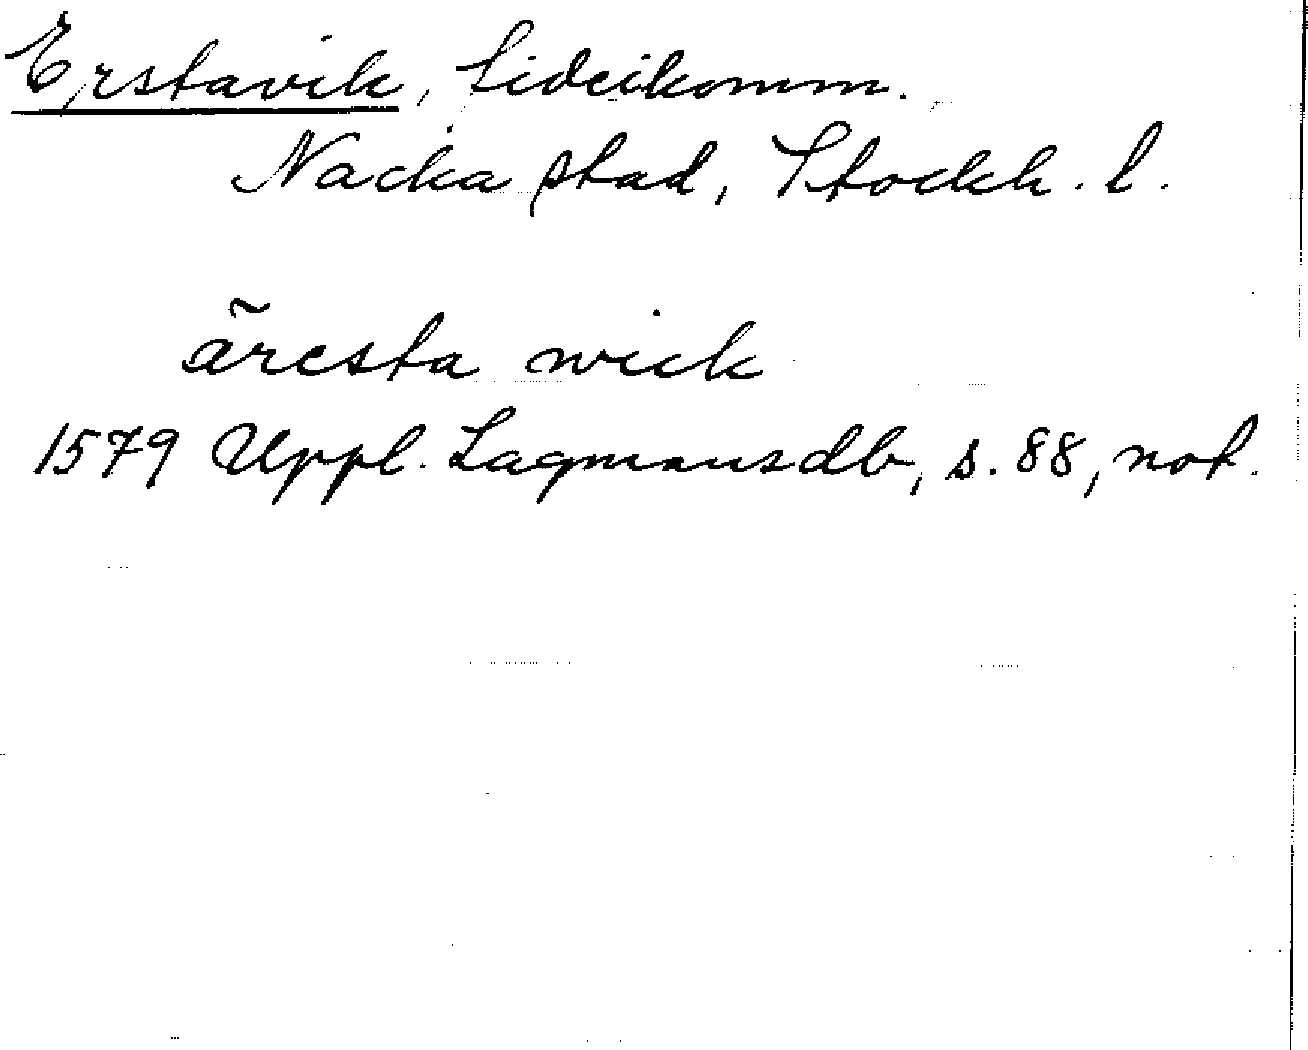 Erstavik, fideikomm.
Nacka stad, Stockh. l.
äresta wick
1579 Uppl. Lagmansdb, s. 88, not.